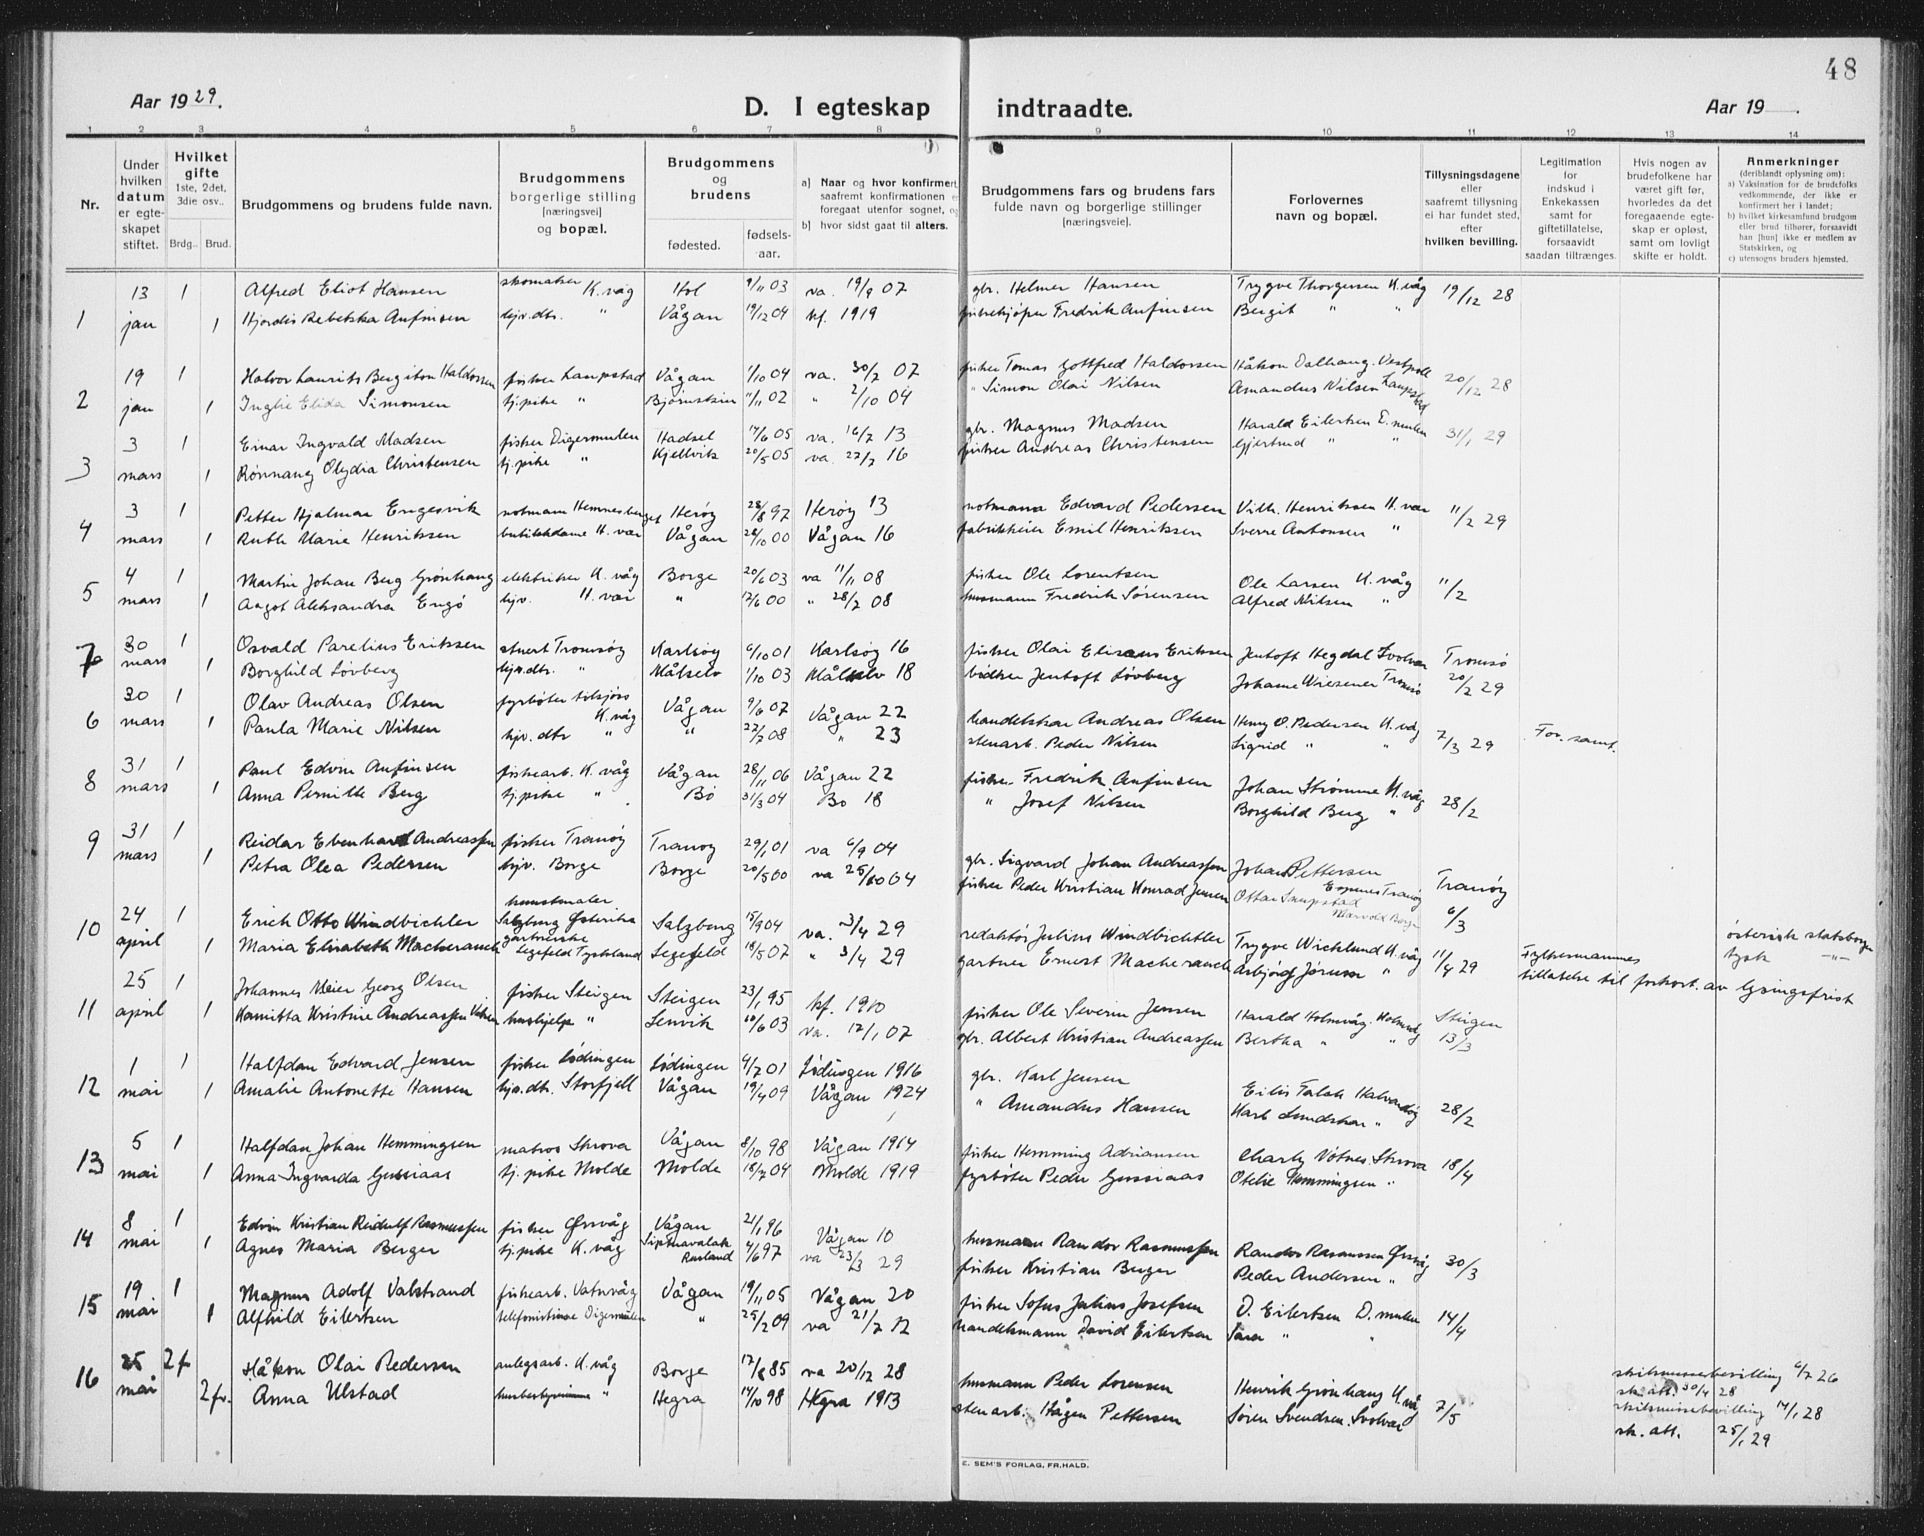 48
Aar 1929.
D. I egteskap indtraadte.
Aar 19 .
1 2 3 4 5 6 7 8 9 10 11 12 13 14
Nr.
Under hvilken datum er egteskapet stiftet.
Hvilket gifte 1ste, 2det, 3die osv..
Brdg.. Brud.
Brudgommens og brudens fulde navn.
Brudgommens borgerlige stilling [næringsvei] og bopæl.
Brudgommens og brudens
fødested. fødselsaar.
a) Naar og hvor konfirmert, saafremt konfirmationen foregaat utenfor sognet, og
b) hvor sidst gaat til alters.
Brudgommens fars og brudens fars fulde navn og borgerlige stillinger [næringsveie].
Forlovernes navn og bopæl.
Tillysningsdagene eller saafremt tillysning ei har fundet sted, efter hvilken bevilling.
Legitimation for indskud i Enkekassen samt for giftetillatelse, forsaavidt saadan tiltrænges.
Hvis nogen av brudefolkene har været gift før, hvorledes da det foregaaende egteskap er opløst, samt om lovligt skifte er holdt.
Anmerkninger (deriblandt oplysning om):
a) Vaksination for de brudefolks vedkommende, der ikke er konfirmert her i landet;
b) hvilket kirkesamfund brudgom eller brud tilhører, forsaavidt han [hun] ikke er medlem av Statskirken, og
c) utensogns bruders hjemsted.
1 13 1 Alfred Eliot Hansen skomaker K.våg Hol 9/11 03 va. 19/9 07 gbr. Helmer Hansen Trygve Thorgersen K.våg 19/12 28
jan 1 Hjordis Rebekka Anfinsen hjv.dtr. " Vågan 19/12 04 kf. 1919 fiskekjøper Fredrik Anfinsen Bergit " "
2 19 1 Halvor Laurits Bergiton Haldorsen fisker Laupstad Vågan 1/10 04 va. 30/7 07 fisker Tomas Gottfred Haldorsen Håkon Dalhaug. Vestpoll 20/12 28
jan 1 Inghe Elida Simonsen tj.pike " 11/11 02 " 2/10 04 " Simon Olai Nilsen Amandus Nilsen Laupstad
3 3 1 Einar Ingvald Madsen fisker Digermulen Hadsel 17/6 05 va. 16/7 13 gbr. Magnus Madsen Harald Eilertsen D.mulen 31/1 29
mars 1 Rønnaug Olydia Christensen tj.pike " Kjellvik 20/5 05 va. 22/7 16 fisker Andreas Christensen Gjertrud " "
4 3 1 Petter Hjalmar Engesvik notmann Hemnesberget Herøy 28/8 97 Herøy 13 notmann Edvard Pedersen Vilh. Henriksen H.vær 11/2 29
mars 1 Ruth Marie Henriksen butikkdame H.vær Vågan 28/10 00 Vågan 16 fabrikkeier Emil Henriksen Sverre Antonsen "
5 4 1 Martin Johan Berg Grønhaug elektriker K.våg Borge 20/6 03 va 11/11 08 fisker Ole Lorentsen Ole Larsen K.våg 11/2
mars 1 Aagot Aleksandra Engø hjv. H.vær " 12/6 00 " 28/7 08 husmann Fredrik Sørensen Alfred Nilsen "
7 30 1 Osvald Parelius Eriksen stuert Tromsøy Karlsøy 6/10 01 Karlsøy 16 fisker Olai Eliseus Eriksen Jentoft Hegdal Svolvær Tromsø
mars 1 Borghild Løvberg hjv.dtr. " Målselv 1/10 03 Målselv 18 Jentoft Løvberg Johanne Wiesener Tromsø 20/2 29
6 30 1 Olav Andreas Olsen fyrbøter tilsjøss K.våg Vågan 9/6 07 Vågan 22 handelskar Andreas Olsen Henry O. Pedersen K.våg 7/3 29 For. samt.
mars 1 Paula Marie Nilsen hjv.dtr " " 22/7 08 " 23 stenarb. Peder Nilsen Sigrid " "
8 31 1 Paul Edvin Anfinsen fiskearb. K.våg Vågan 28/11 06 Vågan 22 fisker Fredrik Anfinsen Johan Strømme K.våg 28/2
mars 1 Anna Pernille Berg tj.pike " Bø 31/3 04 Bø 18 " Josef Nilsen Borghild Berg "
9 31 1 Reidar Ebenhard Andreassen fisker Tranøy Tranøy 29/1 01 va 6/9 04 gbr. Sigvard Johan Andreassen Johan Pettersen Tranøy Tranøy
mars 1 Petra Olea Pedersen hjv. Borge Borge 20/5 00 va 25/10 04 fisker Peder Kristian Konrad Jensen Ottar 6/3
10 24 1 Erich Otto Windbichler kunstmaler Salzburg Østerike Salzburg 15/9 04 va. 3/4 29 redaktør Julius Windbichler Trygve Wicklund K.våg 11/4 29 Fylkesmannes østerisk statsborger
april 1 Maria Elisabeth Macherauch gartnerske Legefeld Tyskland Legefeld 18/5 07 " 3/4 29 gartner Ernest Macherauch Asbjørg Jørum " tillatelse til forkort. av lysingsfrist tysk "
11 25 1 Johannes Meier Georg Olsen fisker Steigen Steigen 23/1 95 kf. 1910 fisker Ole Severin Jensen Harald Holmvåg. Steigen
april 1 Kamitta Kristine Andreassen hushjelp " Lenvik 10/6 03 va. 12/1 07 gbr. Albert Kristian Andreassen Bertha " " 13/3
12 1 1 Halfdan Edvard Jensen fisker Lødingen Lødingen 4/7 01 Lødingen 1916 gbr. Karl Jensen 28/2
mai 1 Amalie Antonette Hansen hjv.dtr. Storfjell Vågan 19/4 09 Vågan 1924 " Amandus Hansen Karl "
13 5 1 Halfdan Johan Hemmingsen matros Skrova Vågan 8/10 98 Vågan 1914 fisker Hemming Adriansen Charly Votnes. Skrova 18/4
mai 1 Anna Ingvarda Gussiaas tj.pike Molde Molde 18/7 04 Molde 1919 fyrbøter Peder Gussiaas Otelie Hemmingsen "
14 8 1 Edvin Kristian Reidulf Rasmussen fisker Ørsvåg Vågan 21/1 96 Vågan 10 husmann Randor Rasmussen Randor Rasmussen Ørsvåg 30/3
mai 1 Agnes Maria Berger tj.pike K.våg Sipknavalak Russland 4/6 97 va 23/3 29 fisker Kristian Berger Peder Andersen "
15 19 1 Magnus Adolf Valstrand fiskearb. Vatervåg Vågan 19/11 05 Vågan 20 fisker Sofus Julius Josefsen D. Eilertsen D.mulen 14/4
mai 1 Alfhild Eilertsen telefonistinne Digermulen " 25/2 09 va 21/7 12 handelsmann David Eilertsen Sara " "
16 25 2f Håkon Olai Pedersen anlegsarb. K.våg Borge 17/8 85 va 20/12 28 husmann Peder Lorensen Henrik Grønhaug K.våg 7/5 skilsmissebevilling 6/7 26
sk. att. 30/4 28
mai 2fr. Anna Ulstad husbestyrerinne " Hegra 14/10 98 Hegra 1913 stenarb. Hågen Pettersen Søren Svendsen. Svolvær skilsmissebevilling 14/1 28
sk. att. 25/1 29
E. SEM'S FORLAG, FR.HALD.